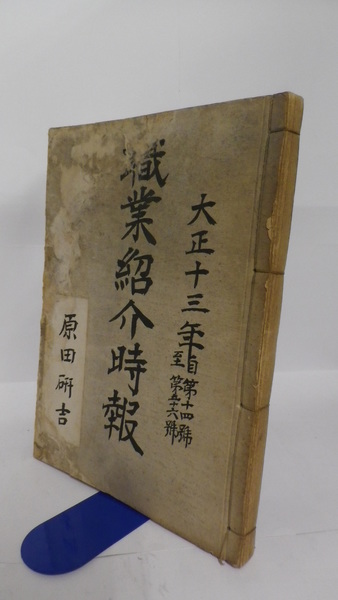 大正十三年自第十四號
至第五十六號
職業紹介時報
原田研吉